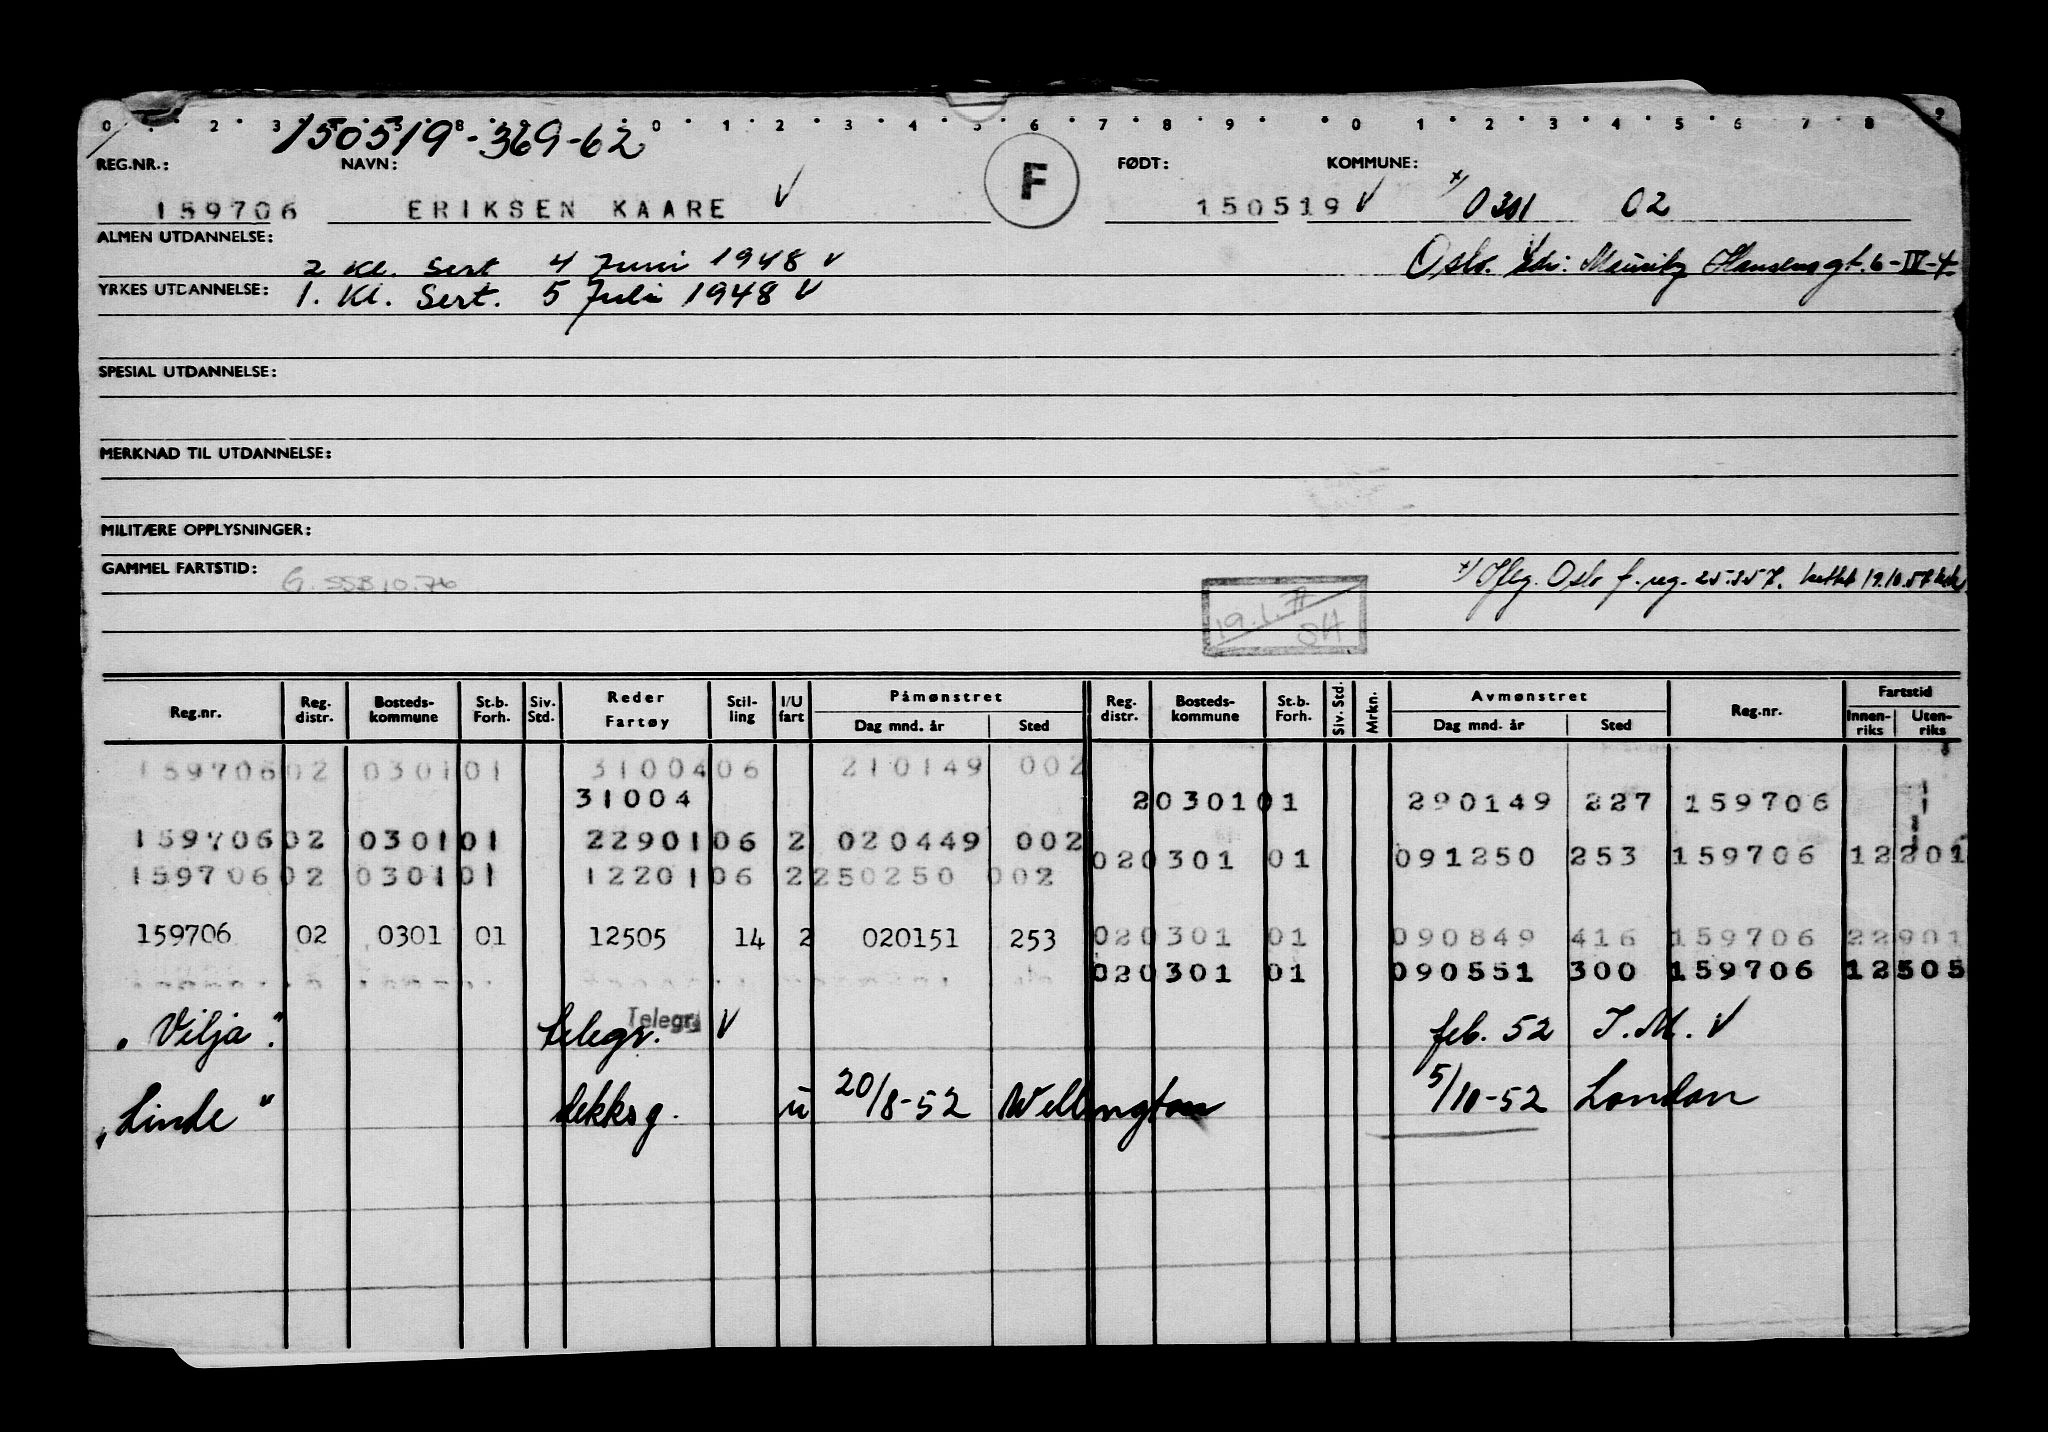 0 . . 2 . 3 . . 5 . 8 . . 0 . 1 . 2 . 3 . 4 . 5 . 6 . 7 . 8 . 9 . . 0 . 1 . 2 . 3 . 4 . 5 . 6 . 7 . 8 . 9
150519-369-62
REG.NR.: NAVN: F FØDT: KOMMUNE:
159706 ERIKSEN KAARE V 150519 V x/ 0301 02
ALMEN UTDANNELSE: 2 Kl. Sert 4 Juni 1948 V Oslo. Adr: Mauritz Hansens gt. 6-IV-4
YRKES UTDANNELSE: 1. Kl. Sert. 5 Juli 1948 V
SPESIAL UTDANNELSE:
MERKNAD TIL UTDANNELSE:
MILITÆRE OPPLYSNINGER:
GAMMEL FARTSTID: G. SSB 10.76 x/ Oslo f. reg.
19.1.77
SH
Reg.nr. Reg. distr. Bosteds-kommune St.b. Forh. Siv. Std. Reder Fartøy Stil-ling I/U fart Påmønstret Dag mnd. år Sted Reg. distr. Bosteds-kommune St.b. Forh. Siv. Std. Mrkn. Avmønstret Dag mnd. år Sted Reg.nr. Fartstid Innen-riks Uten-riks
159706 02 0301 01 31004 06 210149 002
31004 2 0301 01 290149 227 159706
159706 02 0301 01 22901 06 2 020449 002
020301 01 091250 253 159706 12201
159706 02 0301 01 12201 06 2 250250 002
159706 02 0301 01 12505 14 2 020151 253 020301 01 090849 416 159706 22901
020301 01 090551 300 159706 12505
"Vilja". telegr. Telegr. V feb. 52 I.M. V
"Linde" dekksg. u 20/8-52 Wellington 5/10-52 London